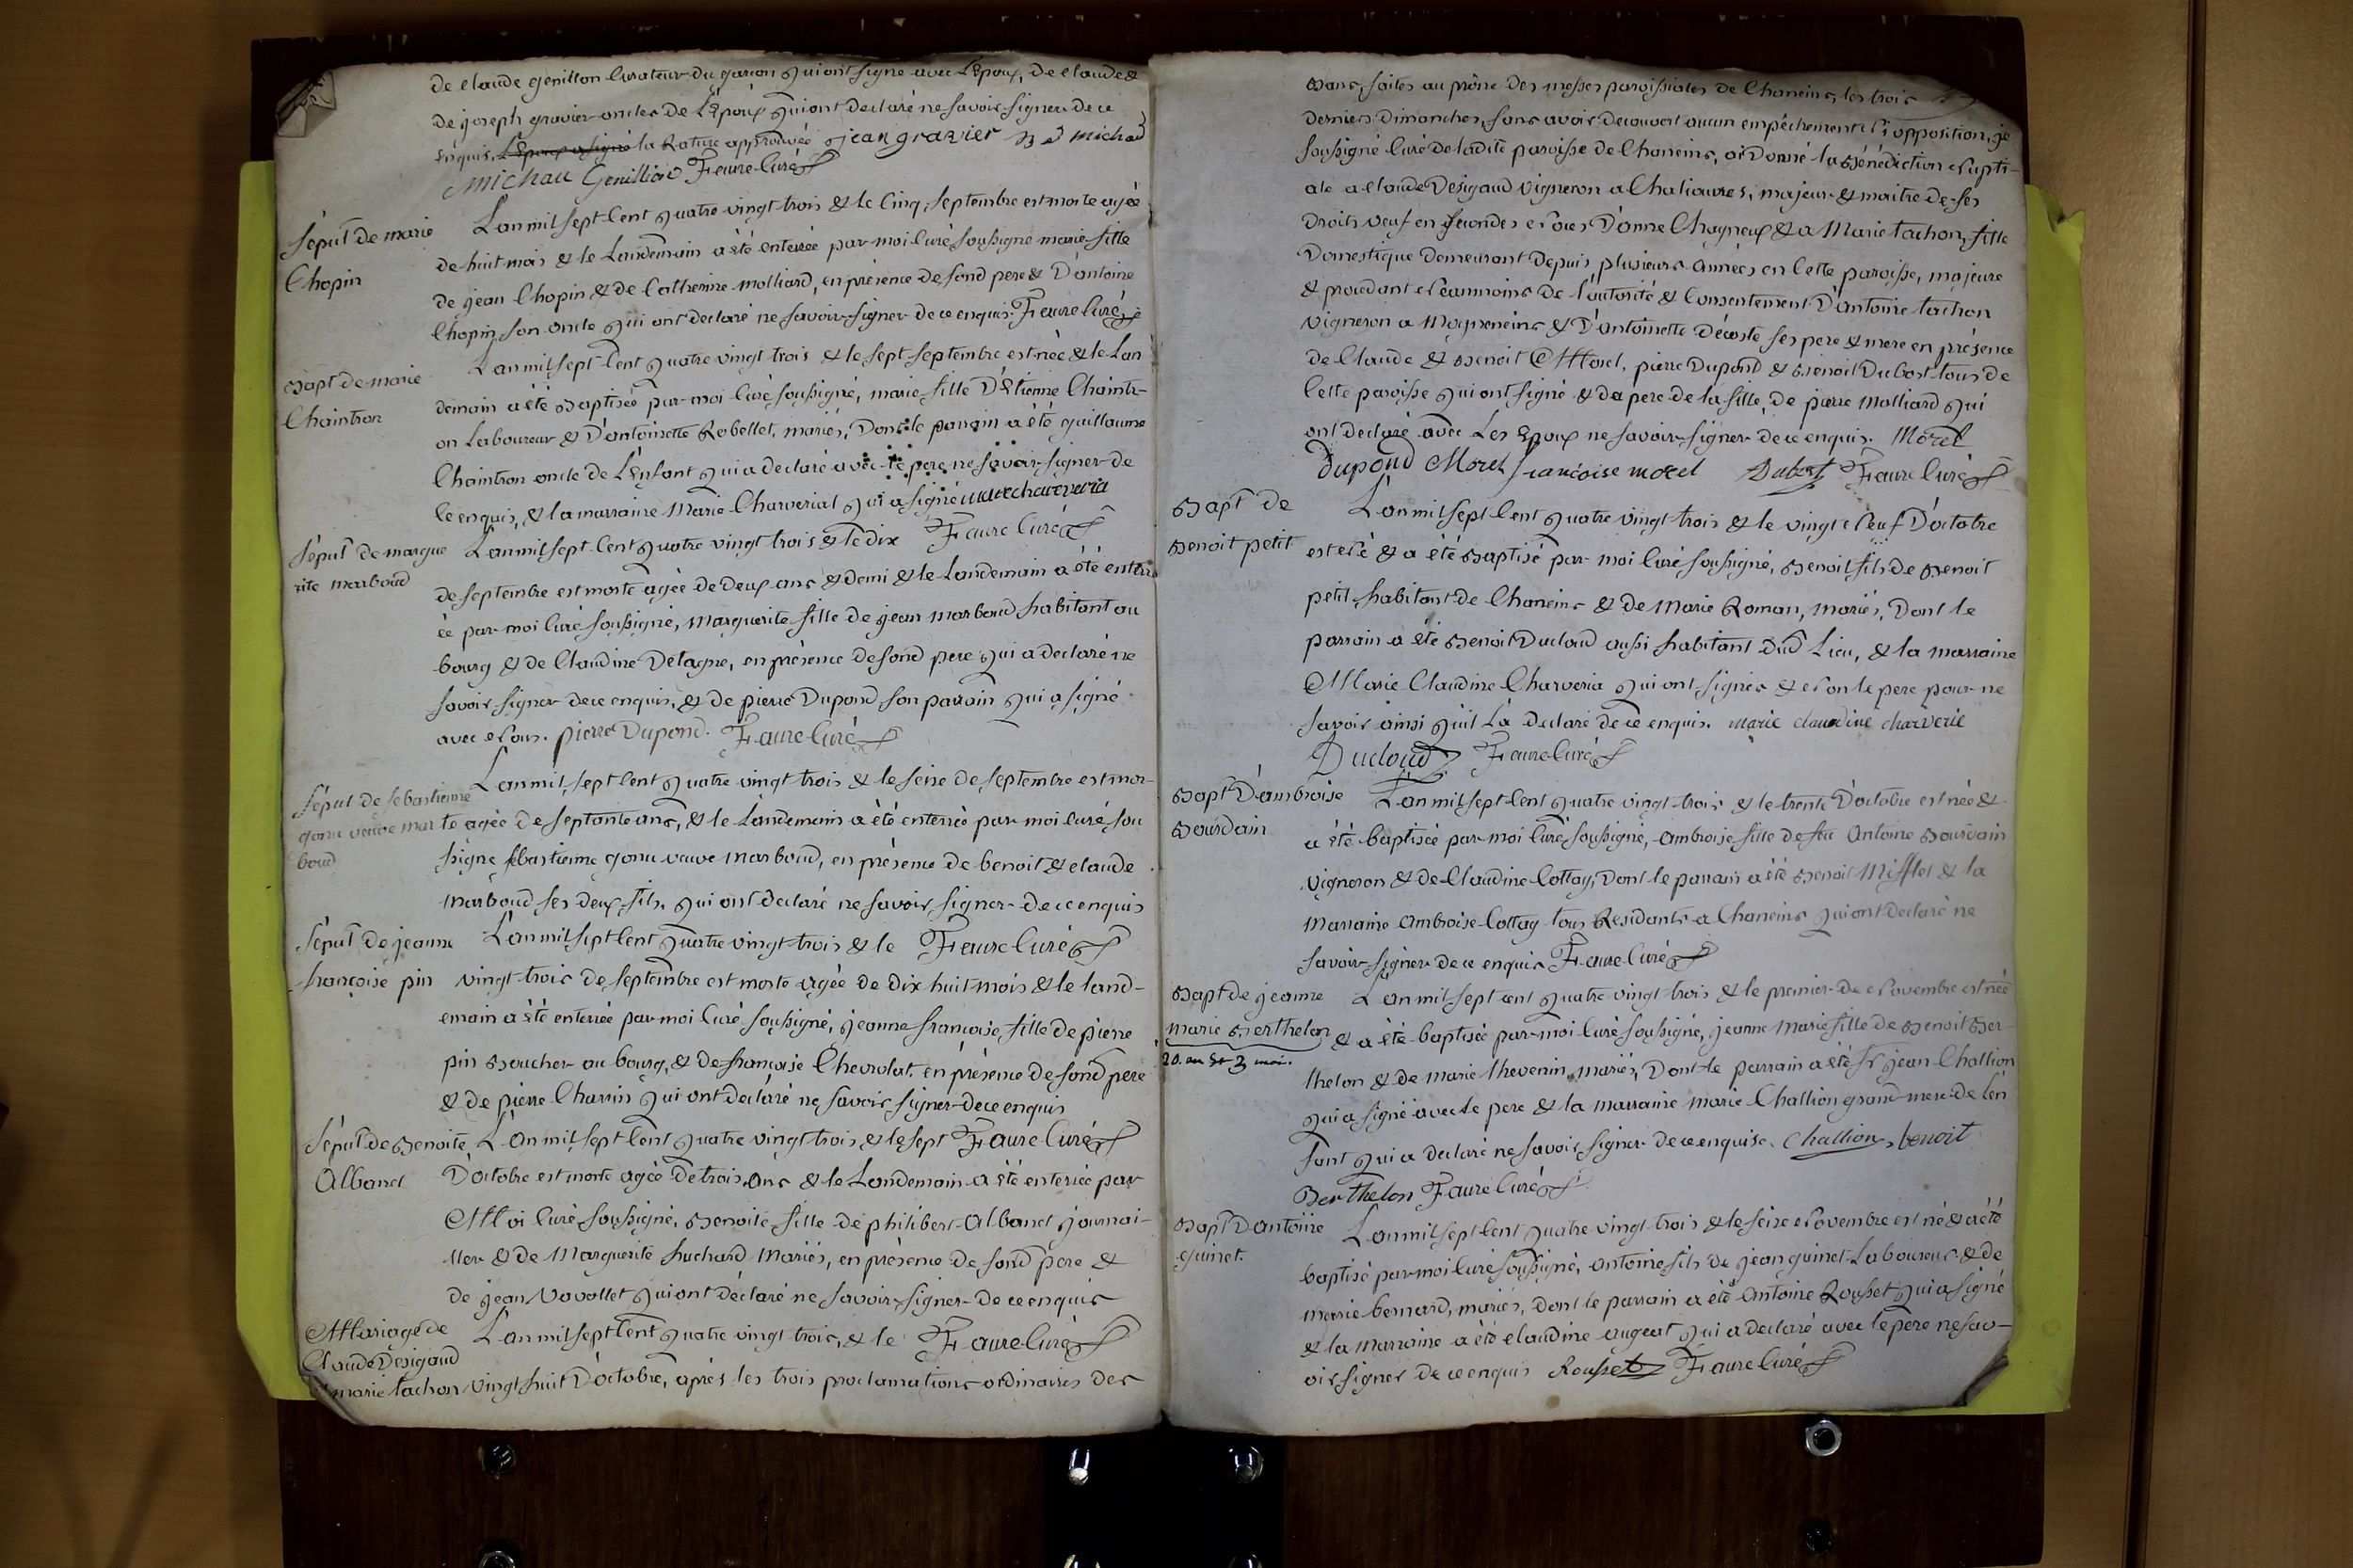 de claude genillon Curateur du garcon qui ont signé avec L'Epoux, de claude &
de joseph gravier oncles de L'Epoux qui ont declaré ne savoir signer de ce
enquis. L'Epoux a signé la Rature approuvée jean gravier michau
michau Genillion Faure Curé
Sepul de marie
Chopin
L'an mil sept Cent quatre vingt trois & le Cinq septembre est morte agée
de huit mois & le Landemain a été enterrée par moi Curé soussigné marie fille
de jean Chopin & de Catherine molliard, en présence de sond pere & D'antoine
Chopin son oncle qui ont declaré ne savoir signer de ce enquis. Faure Curé
Bapt de marie
Chaintron
L'an mil sept Cent quatre vingt trois & le sept septembre est née & le Lan
demain a été Baptisée par moi Curé soussigné, marie fille D'Etienne Chaintr-
on Laboureur & D'antoinette Robellet, mariés, Dont le parrain a été guillaume
Chaintron oncle de L'Enfant qui a declaré avec le pere ne savoir signer de
ce enquis, & la marraine Marie Charverial qui a signé marie charveria
Faure Curé
Sepul de margue
rite marboud
L'an mil sept Cent quatre vingt trois & le dix
de septembre est morte agée de deux ans & demi & le Landemain a été enterr
ée par moi Curé soussigné, marguerite fille de jean marboud habitant au
bourg & de Claudine Delagne, en présence de sond pere qui a declaré ne
savoir signer de ce enquis, & de pierre Dupond son parrain qui a signé
avec Nous. pierre Dupond. Faure Curé
Sepul de sebastienne
gonu veuve mar
boud
L'an mil sept Cent quatre vingt trois & le seise de septembre est mor-
te agée de septante ans, & le Landemain a été enterrée par moi Curé sou
ssigné sebastienne gonu veuve marboud, en présence de benoit & claude
marboud ses deux fils, qui ont declaré ne savoir signer de ce enquis
Faure Curé
Sepul de jeanne
françoise pin
L'an mil sept Cent quatre vingt trois & le
vingt trois de septembre est morte agée de dix huit mois & le land-
emain a été enterrée par moi Curé soussigné, jeanne francoise fille de pierre
pin Boucher au bourg, & de françoise Chevrolat, en présence de sond pere
& de pierre Charrin qui ont declaré ne savoir signer de ce enquis
Sepul de Benoite
Albanel
L'an mil sept Cent quatre vingt trois & le sept Faure Curé
D'octobre est morte agée de trois ans & le Landemain a été enterrée par
Moi Curé soussigné, Benoite fille de philibert Albanel journal-
lier & de Marguerite huchard Mariés, en présence de sond pere &
de jean Vovollet qui ont déclaré ne savoir signer de ce enquis
Mariage de
Claude Desigaud
marie tachon
L'an mil sept Cent quatre vingt trois, & le Faure Curé
vingt huit D'octobre, après les trois proclamations ordinaires des
Bans, faites au prône des messes paroissiales de Chaneins, les trois
derniers Dimanches, sans avoir decouvert aucun empêchement Ni opposition, je
soussigné Curé de ladite paroisse de Chaneins, ai Donné la Bénédiction Nupti-
ale a Claude Desigaud vigneron a Chaliouvres, majeur & maitre de ses
Droits veuf en secondes Noces D'anne Chagneux & a Marie tachon, fille
Domestique demeurant depuis plusieurs années en Cette paroisse, majeure
& procedant Néanmoins de l'autorité & Consentement D'antoine tachon
vigneron a Mogneneins & D'antoinette Décoste ses pere & mere en présence
de Claude & Benoit Morel, pierre Dupond & Benoit Dubost tous de
Cette paroisse qui ont signé & du pere de la fille, de pierre Malliard qui
ont declaré avec Les Epoux ne savoir signer de ce enquis. Morel
Dupond Morel francoise morel Dubost Faure Curé
Bapt de
Benoit petit
L'an mil sept Cent quatre vingt trois & le vingt Neuf D'octobre
est Né & a été Baptisé par moi Curé soussigné, Benoit fils de Benoit
petit habitant de Chaneins & de Marie Roman, mariés, Dont le
parrain a été Benoit Ducloud aussi habitant dud Lieu, & la marraine
Marie Claudine Charveria qui ont signés & Non le pere pour ne
savoir ainsi qu'il L'a declaré de ce enquis. marie claudine charverie
Ducloud Faure Curé
Bapt D'ambroise
Bourdain
L'an mil sept Cent quatre vingt trois & le trente D'octobre est née &
a été baptisée par moi Curé soussigné, Ambroise fille de feu Antoine Bourdain
vigneron & de Claudine Cottay, Dont le parrain a été Benoit Mifflet & la
Marraine Ambroise Cottay tous Residants a Chaneins qui ont declaré ne
savoir signer de ce enquis Faure Curé
Bapt de jeanne
marie Berthelon
20. an et 3 mois.
L'an mil sept cent quatre vingt trois & le premier de Novembre est née
& a été baptisée par moi Curé soussigné, jeanne Marie fille de Benoit Ber-
thelon & de marie thevenin mariés, Dont le parrain a été Sr jean Challion
qui a signé avec le pere & la marraine marie Challion grand mere de l'en
fant qui a declaré ne savoir signer de ce enquise. Challion, benoit
Berthelon Faure Curé
Bapt D'antoine
guinet.
L'an mil sept Cent quatre vingt trois & le seise Novembre est né & a été
baptisé par moi Curé soussigné, Antoine fils de jean guinet Laboureur & de
marie bernard, mariés, dont le parrain a été Antoine Rousset qui a signé
& la Marraine a été claudine augeat qui a declaré avec le pere ne sav-
oir signer de ce enquis Rousset Faure Curé